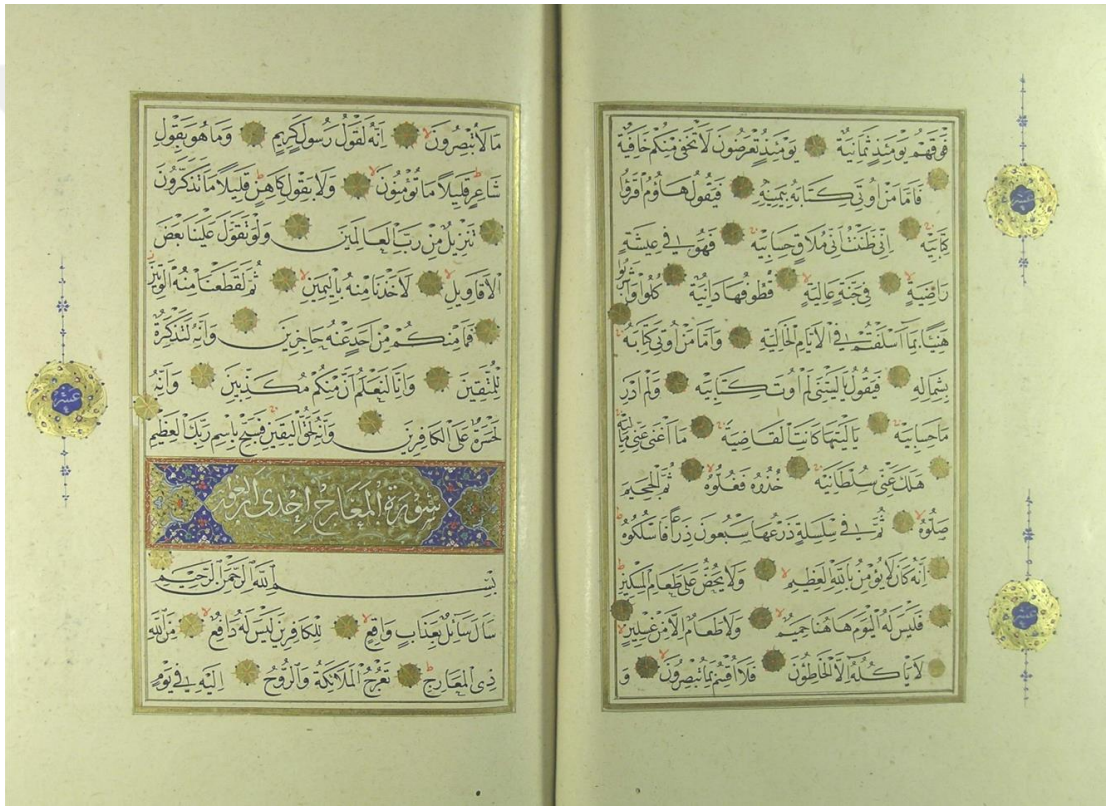 فوقهم يومئذ ثمانية يومئذ تعرضون لا تخفى منكم خافية
فاما من اوتى كتابه بيمينه فيقول هاؤم اقرؤا
كتابيه انى ظننت انى ملاق حسابيه فهو فى عيشة
راضية فى جنة عالية قطوفها دانية كلوا واشربوا
هنيئا بما اسلفتم فى الايام الخالية واما من اوتى كتابه
بشماله فيقول ياليتنى لم اوت كتابيه ولم ادر
ما حسابيه ياليتها كانت القاضية ما اغنى عنى ماليه
هلك عنى سلطانيه خذوه فغلوه ثم الجحيم
صلوه ثم فى سلسلة ذرعها سبعون ذراعا فاسلكوه
انه كان لا يؤمن بالله العظيم ولا يحض على طعام المسكين
فليس له اليوم هاهنا حميم ولا طعام الا من غسلين
لا ياكله الا الخاطؤن فلا اقسم بما تبصرون و
ما لا تبصرون انه لقول رسول كريم وما هو بقول
شاعر قليلا ما تؤمنون ولا بقول كاهن قليلا ما تذكرون
تنزيل من رب العالمين ولو تقول علينا بعض
الاقاويل لاخذنا منه باليمين ثم لقطعنا منه الوتين
فما منكم من احد عنه حاجزين وانه لتذكرة
للمتقين وانا لنعلم ان منكم مكذبين وانه
لحسرة على الكافرين وانه لحق اليقين فسبح باسم ربك العظيم
سورة المعارج احدى اربعون
بسم الله الرحمن الرحيم
سال سائل بعذاب واقع للكافرين ليس له دافع من الله
ذى المعارج تعرج الملائكة والروح اليه فى يوم
عشر
عشر
عشر